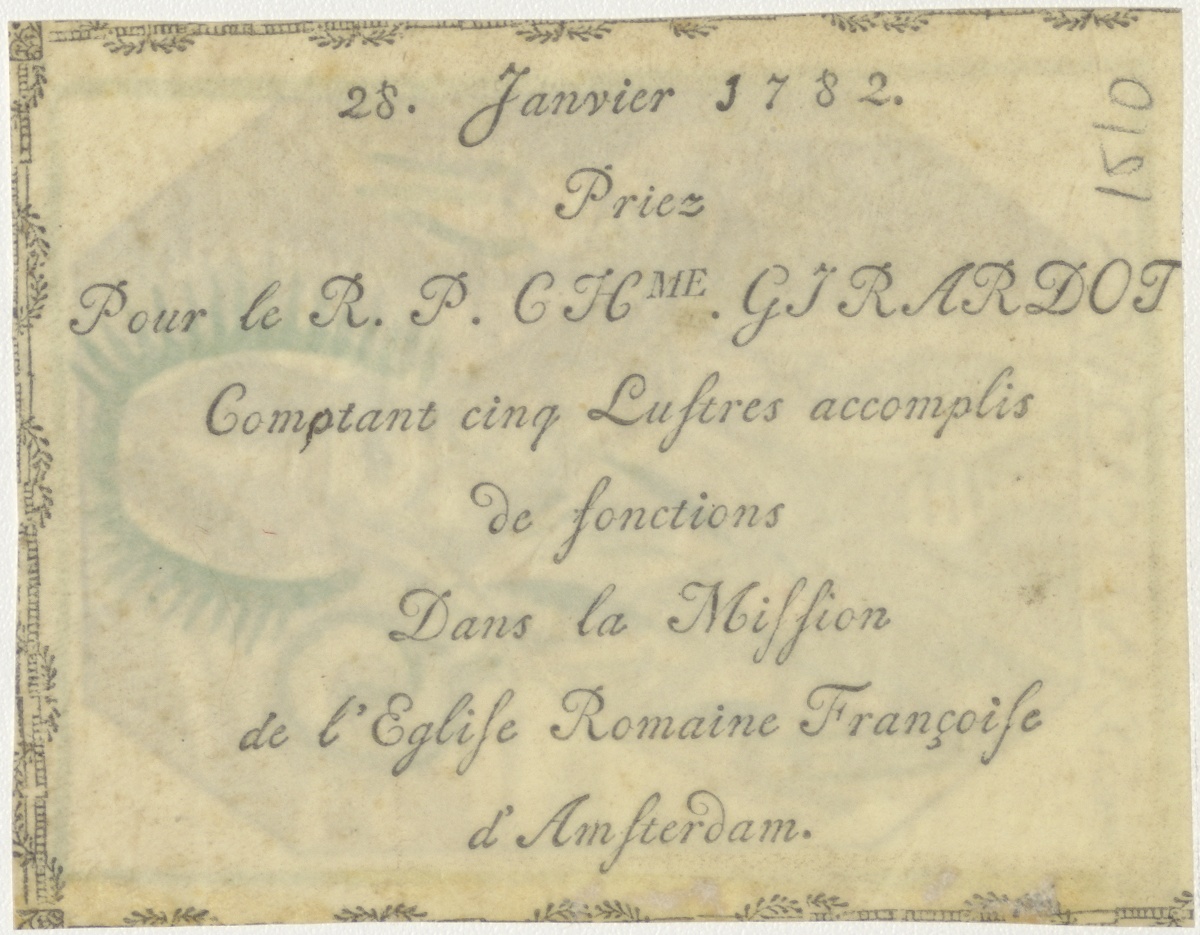 28. Janvier 1782.
Priez
Pour le R. P. CHME. GIRARDOT
Comptant cinq Luſtres accomplis
de fonctions
Dans la Miſſion
de l'Egliſe Romaine Françoiſe
d'Amſterdam.
1510